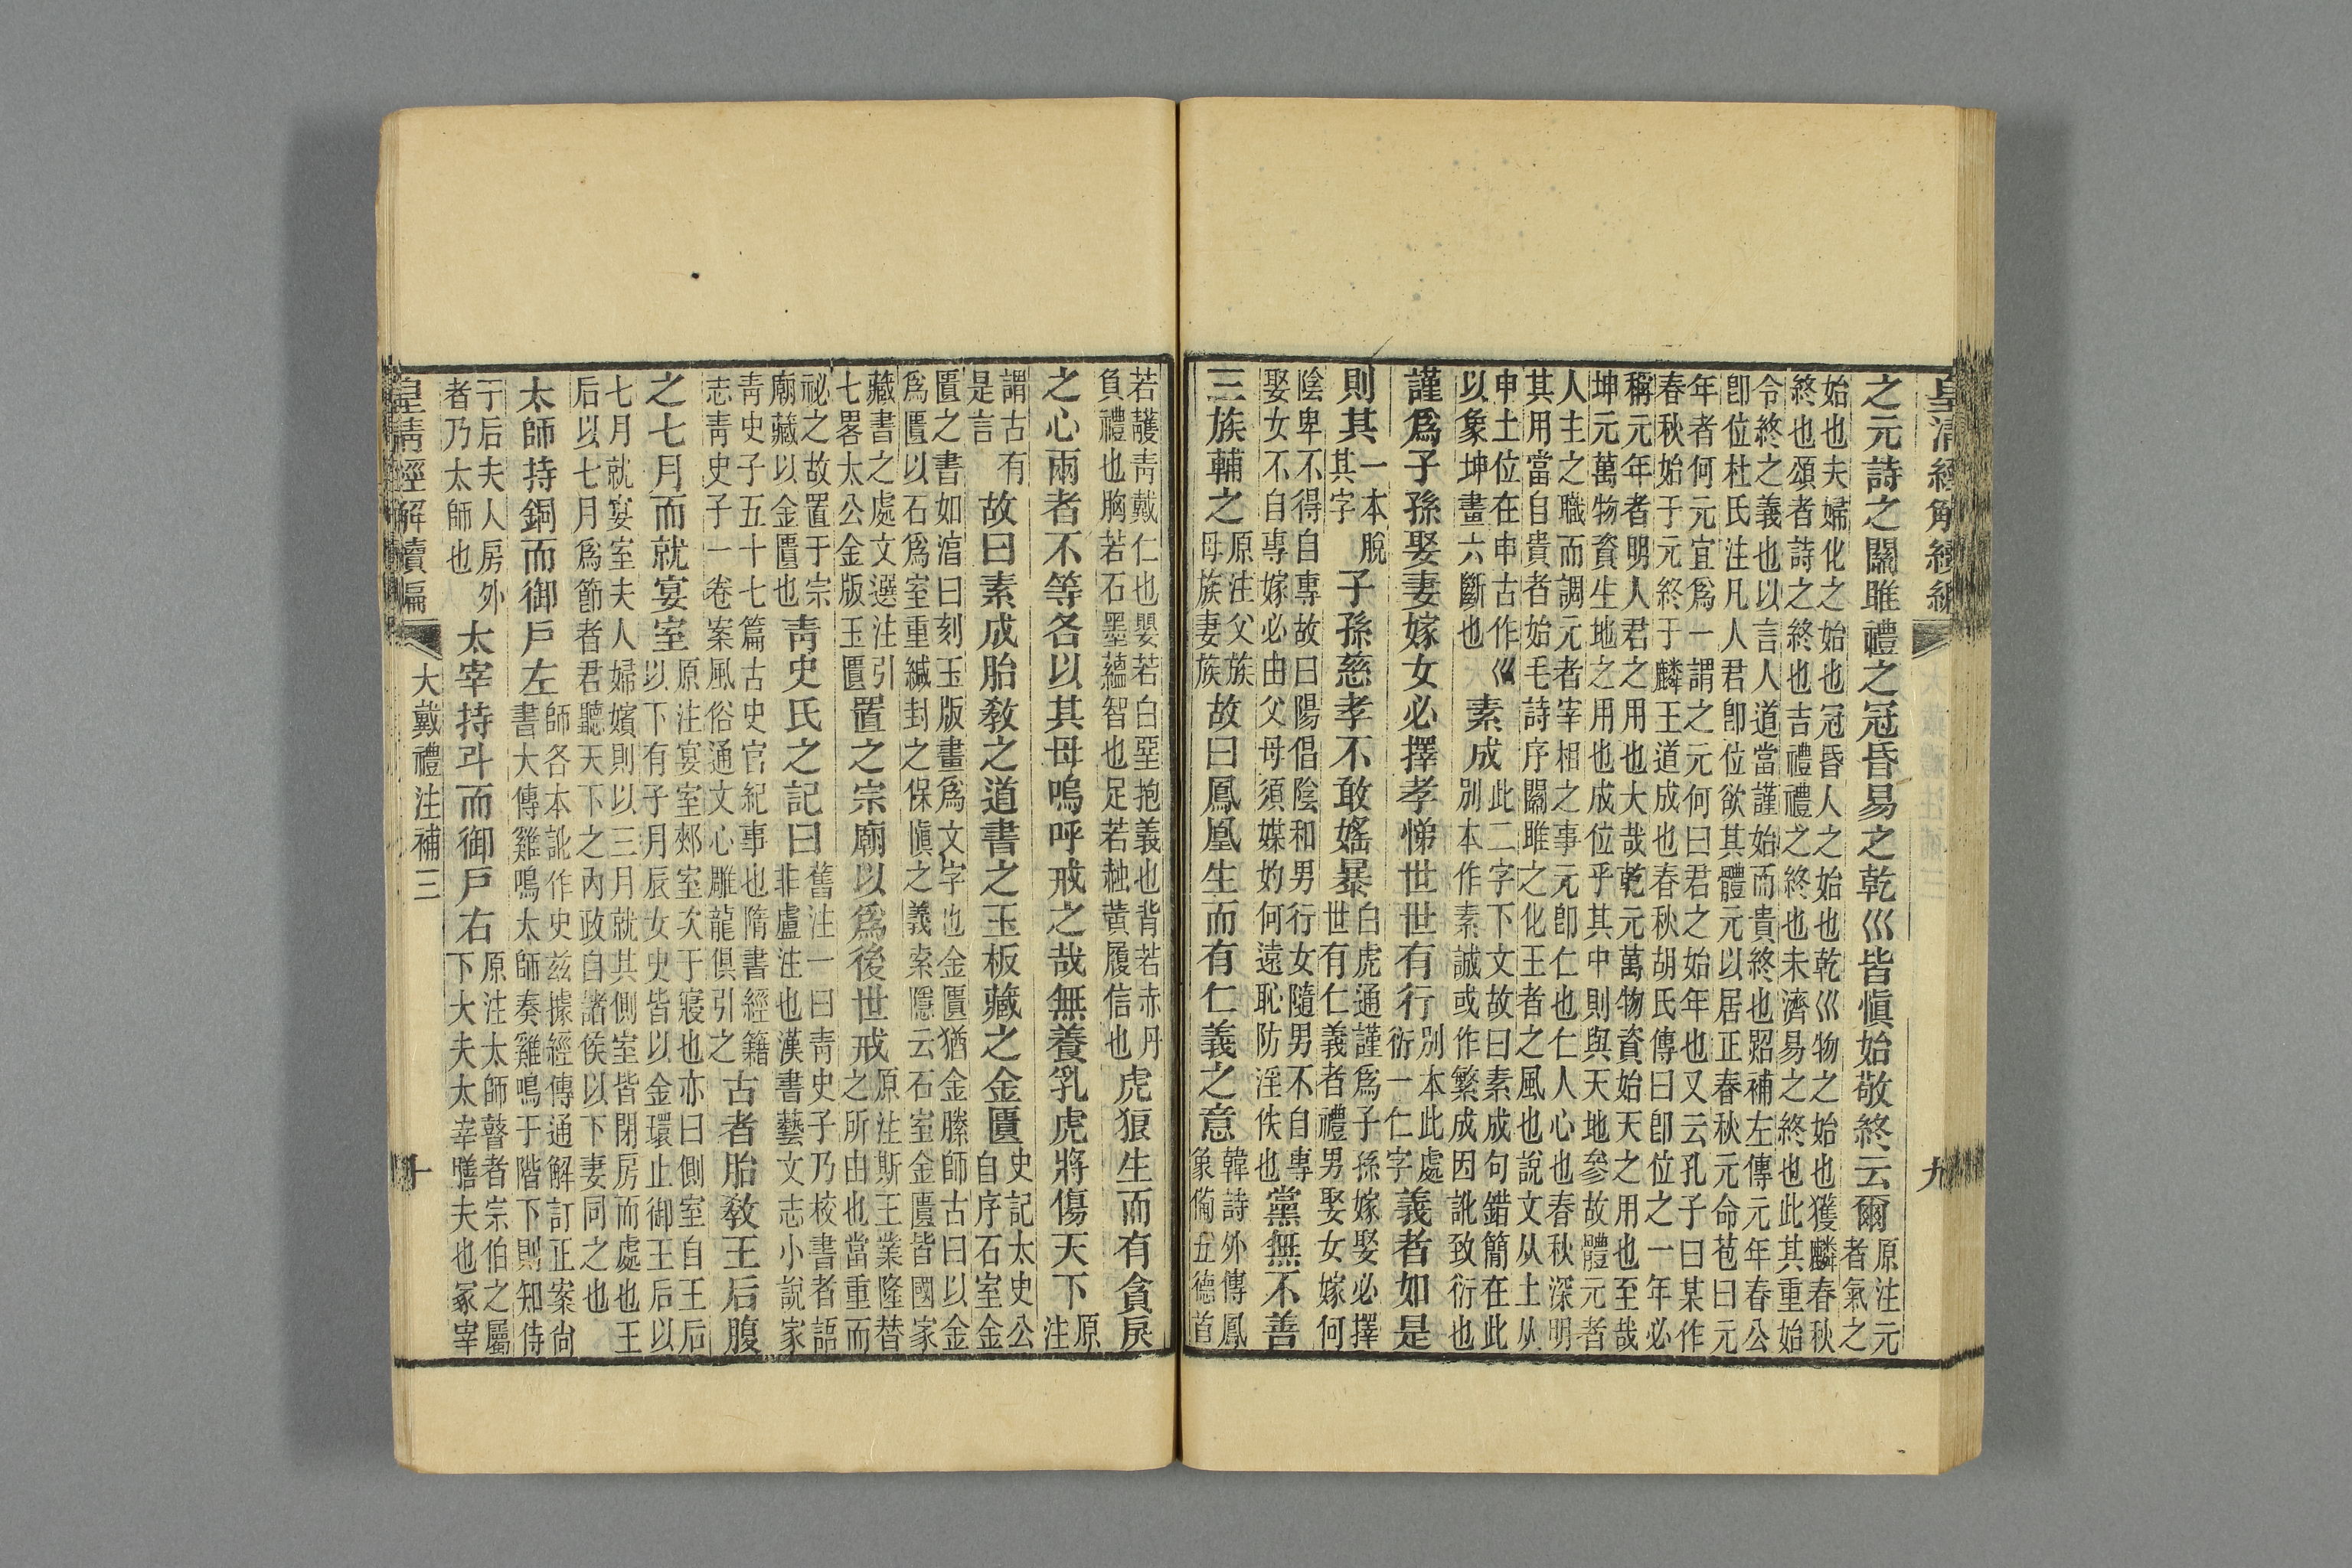 皇清經解續編
九
之元詩之關雎禮之冠昏易之乾巛皆愼始敬終云爾原注元
者氣之
始也夫婦化之始也冠昏人之始也乾巛物之始也獲麟春秋
終也頌者詩之終也吉禮禮之終也未濟易之終也此其重始
令終之義也以言人道當謹始而貴終也照補左傳元年春公
卽位杜氏注凡人君卽位欲其體元以居正春秋元命苞曰元
年者何元宜爲一謂之元何曰君之始年也又云孔子曰某作
春秋始于元終于麟王道成也春秋胡氏傳曰卽位之一年必
稱元年者明人君之用也大哉乾元萬物資始天之用也至哉
坤元萬物資生地之用也成位乎其中則與天地參故體元者
人主之職而調元者宰相之事元卽仁也仁人心也春秋深明
其用當自貴者始毛詩序關雎之化王者之風也說文从土从
申土位在申古作巛
以象坤畫六斷也
素成此二字下文故曰素成句錯簡在此
別本作素誠或作繁成因訛致衍也
謹爲子孫娶妻嫁女必擇孝悌世世有行別本此處
衍一仁字
義者如是
則其一本脫
其字
子孫慈孝不敢婬暴白虎通謹爲子孫嫁娶必擇
世有仁義者禮男娶女嫁何
陰卑不得自專故曰陽倡陰和男行女隨男不自專
娶女不自專嫁必由父母須媒妁何遠恥防淫佚也
黨無不善
三族輔之原注父族
母族妻族
故曰鳳凰生而有仁義之意韓詩外傳鳳
象備五德首
若䕶靑戴仁也嬰若白堊抱義也背若赤丹
負禮也胸若石墨蘊智也足若䵮黃履信也
虎狼生而有貪戾
之心兩者不等各以其母嗚呼戒之哉無養乳虎將傷天下原
注
謂古有
是言
故曰素成胎敎之道書之玉板藏之金匱史記太史公
自序石室金
匱之書如㴞曰刻玉版畫爲文字也金匱猶金縢師古曰以金
爲匱以石爲室重緘封之保愼之義索隱云石室金匱皆國家
藏書之處文選注引
七畧太公金版玉匱
置之宗廟以爲後世戒原注斯王業隆替
之所由也當重而
祕之故置于宗
廟藏以金匱也
靑史氏之記曰舊注一曰靑史子乃校書者語
非盧注也漢書藝文志小說家
靑史子五十七篇古史官紀事也隋書經籍
志靑史子一卷案風俗通文心雕龍俱引之
古者胎敎王后腹
之七月而就宴室原注宴室郟室次于寢也亦曰側室自王后
以下有子月辰女史皆以金環止御王后以
七月就宴室夫人婦嬪則以三月就其側室皆閉房而處也王
后以七月爲節者君聽天下之內政自諸侯以下妻同之也
太師持銅而御戶左師各本訛作史兹據經傳通解訂正案尙
書大傳雞鳴太師奏雞鳴于階下則知侍
于后夫人房外
者乃太師也
太宰持斗而御戶右原注太師瞽者宗伯之屬
下大夫太宰膳夫也冢宰
皇淸經解續編
大戴禮注補三
十